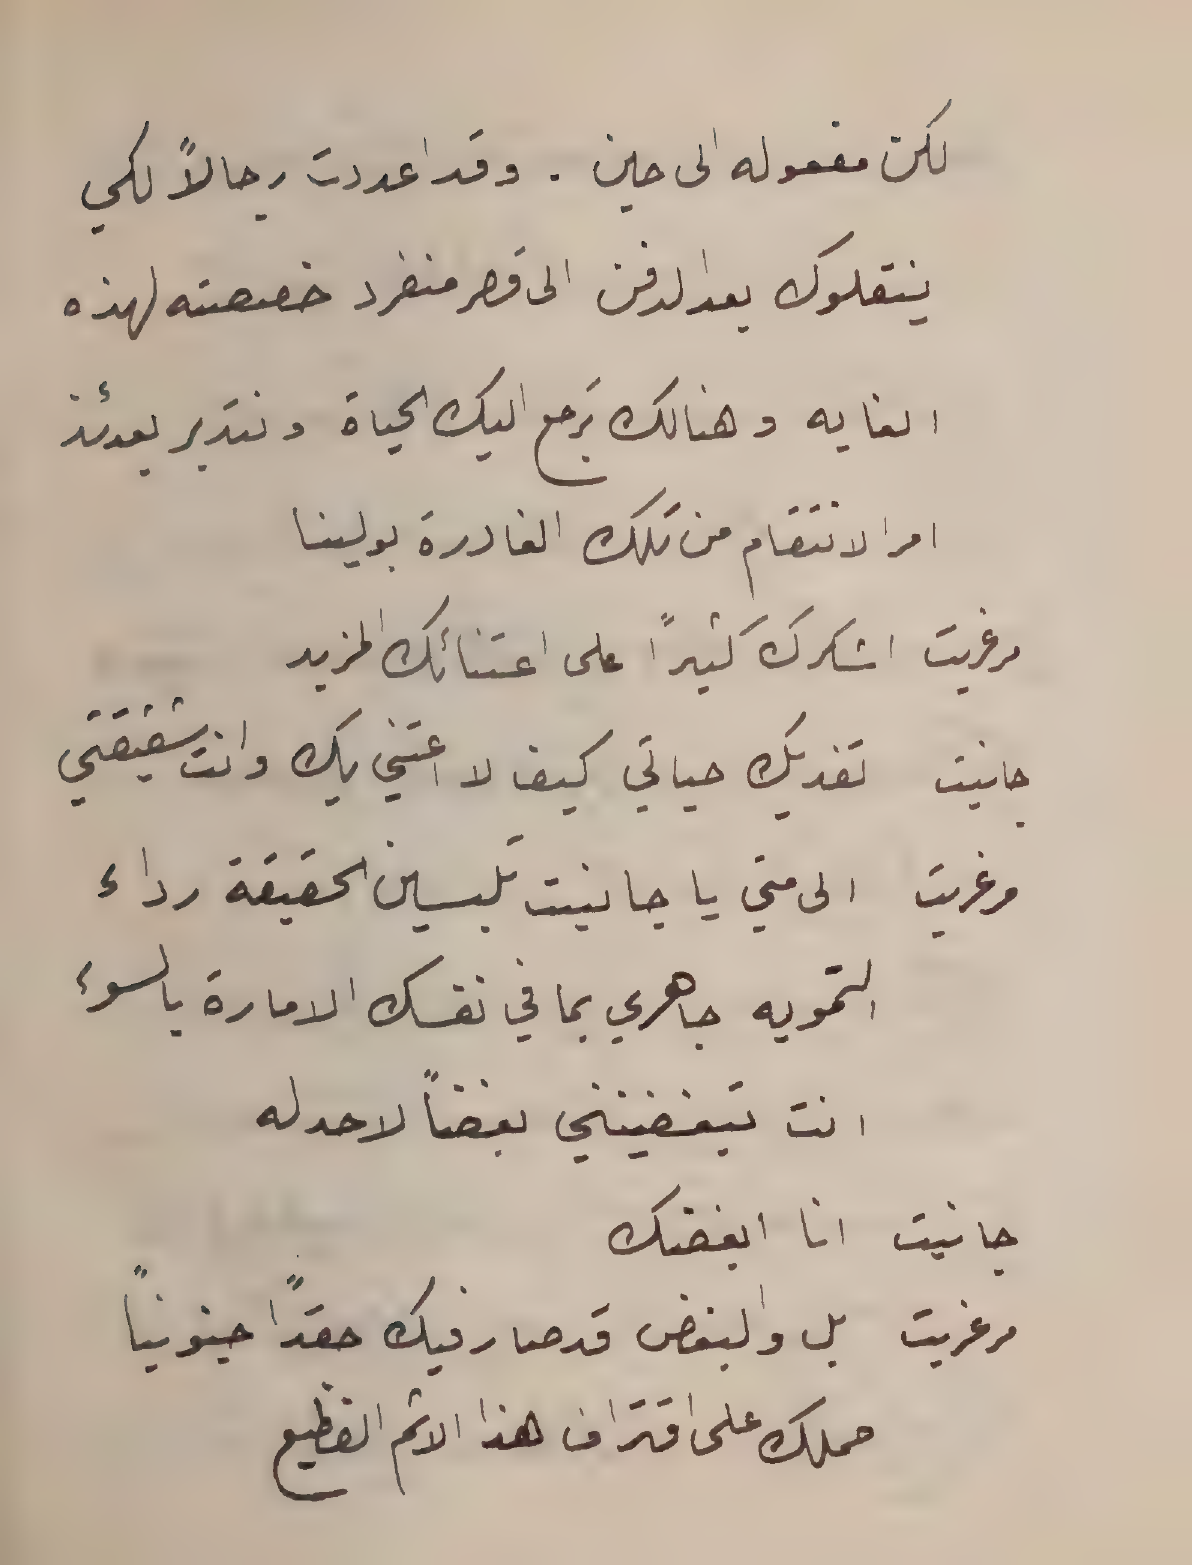 لكن مفعوله الى حين . وقد اعددت رجالاً لكي
ينتقلوك بعد الدفن الى قصر منفرد خصصته لهذه
الغايه وهنالك ترجع اليك الحياة ونتدبر بعدئذ
امر الانتقام من تلك الغادرة بولينا
مرغريت اشكرك كثيرًا على اعتنائك المزيد
جانيت تفديك حياتي كيف لا اعتني بك وانت شقيقتي
مرغريت الى متى يا جانيت تلبسين الحقيقة رداء
التمويه جاهري بما في نفسك الامارة بالسوء
انت تبغضينني بغضاً لا حد له
جانيت انا ابغضك
مرغريت بل والبغض قد صار فيك حقدًا جنونياً
حملك على اقتراف هذا الاثم الفظيع